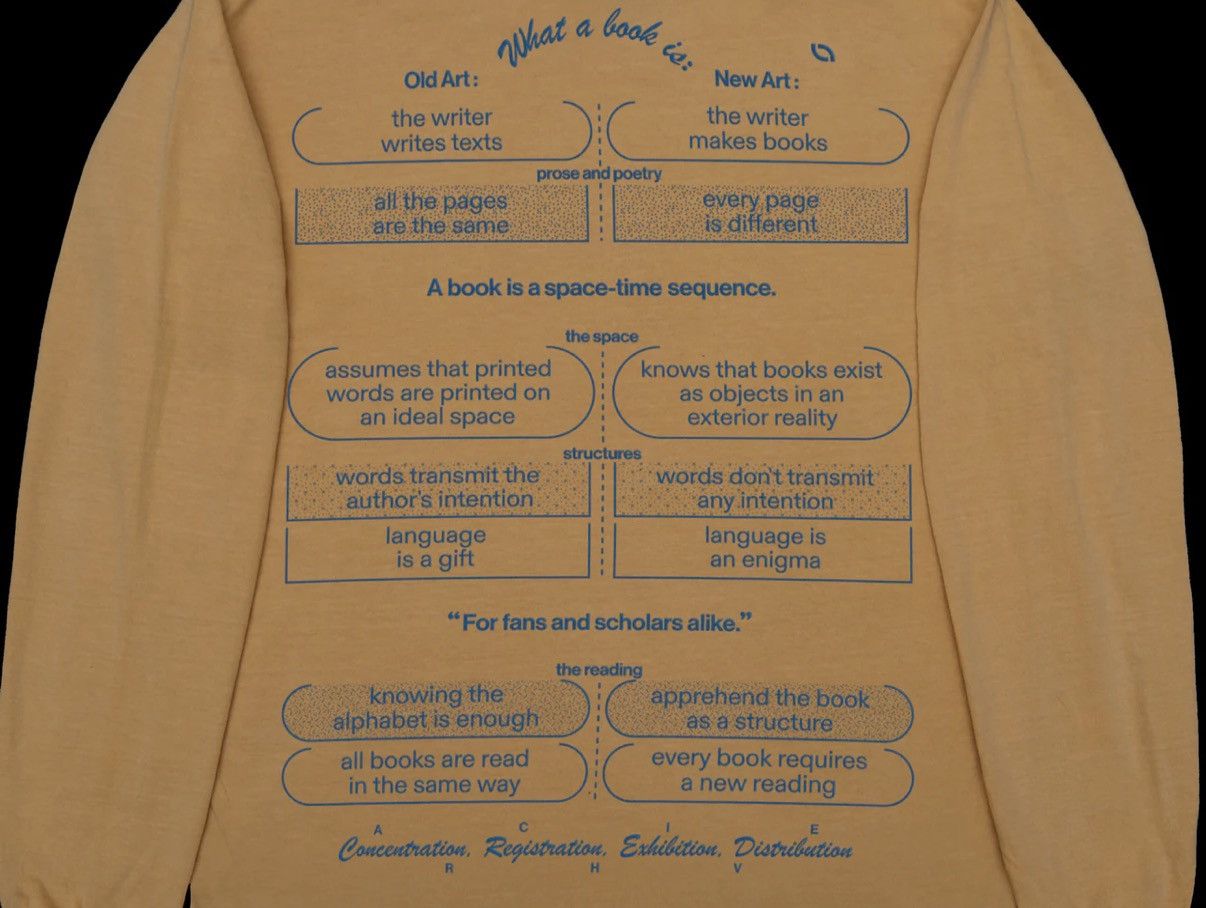 What a book is:
Old Art: New Art:
the writer
writes texts
the writer
makes books
prose and poetry
all the pages
are the same
every page
is different
A book is a space-time sequence.
the space
assumes that printed
words are printed on
an ideal space
knows that books exist
as objects in an
exterior reality
structures
words transmit the
author's intention
words don't transmit
any intention
language
is a gift
language is
an enigma
“For fans and scholars alike.”
the reading
knowing the
alphabet is enough
apprehend the book
as a structure
all books are read
in the same way
every book requires
a new reading
A C I E
Concentration, Registration, Exhibition, Distribution
R H V